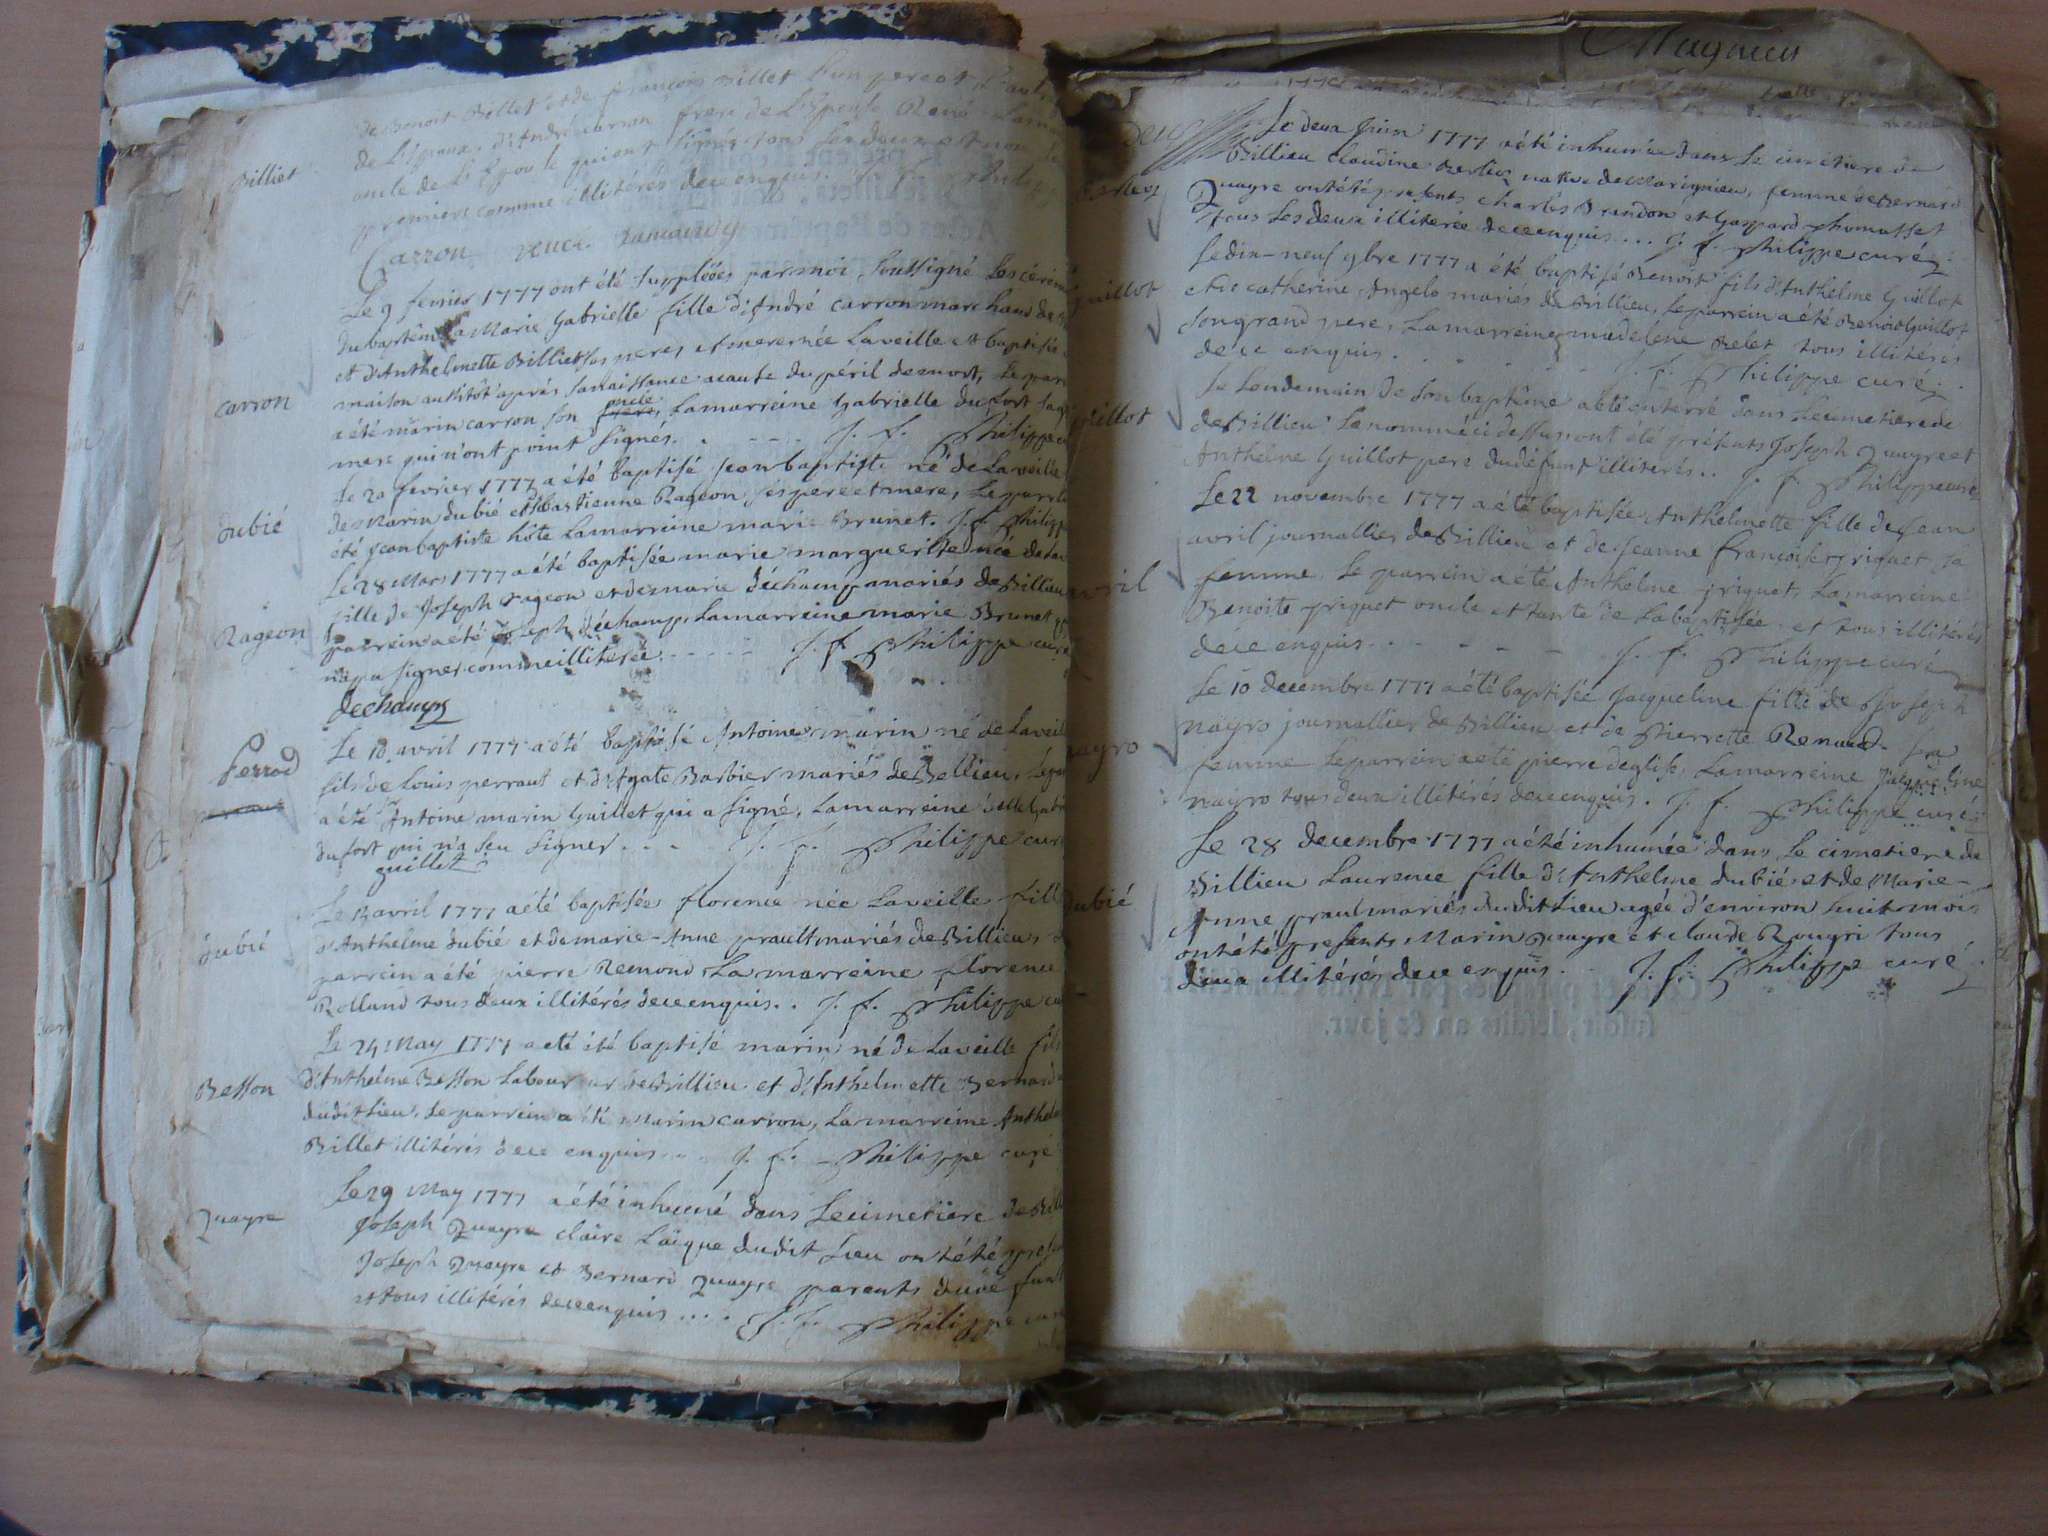 de Benoit Billet et de françois Billet l'un pere et l'autre
Billiet
de L'Epoux, d'André carron frere de L'Epouse René
oncle de L'Epouse qui ont signés non les deux
premiers comme illitérés de ce enquis. J. f.
Carron
Le 9 fevrier 1777 ont été supplées par moi soussigné les cérém
du baptême a Marie Gabrielle fille d'André carron marchand de
et d'Anthelmette Billiet ses peres et mere née la veille et baptisée
maison aussitôt après sa naissance a cause du péril de mort, le par
carron
a été marin carron son frere oncle, la marreine Gabrielle du fort sa
mere qui n'ont point signés. . - - - J. f. Philippe c
Le 20 fevrier 1777 a été baptisé jean baptiste né de la veille
de Marin dubié et Sébastienne Rageon, ses pere et mere, le parr
dubié
été jean baptiste hôte la marreine marie Brunet. J. f. Philipp
Le 28 Mars 1777 a été baptisée marie marguerite née de la
fille de Joseph rageon et de marie déchamp mariés de Billieu
Rageon
parrein a été joseph déchamp, la marreine marie Brunet
n'a pu signer comme illiterée. - - - - J. f. Philippe curé
dechamps
Le 10 avril 1777 a été baptisé Antoine marin né de la veil
Perrod
fils de Louis perraut et d'Agate Barbier mariés de Bellieu, le par
perraut
a été sr Antoine marin Guillet qui a signé, la marreine delle Gabri
du fort qui n'a seu signer . . . J. f. Philippe cur
guillet
Le avril 1777 a été baptisée florence née la veille fill
dubié
d'Anthelme dubié et de marie-Anne prault mariés de Billieu
parrein a été pierre Remond la marreine florence
Rolland tous deux illitérés de ce enquis. . J. f. Philippe cu
Le 24 May 1777 a eté été baptisé marin né de la veille fils
Besson
d'Anthelme Besson laboureur de Billieu et d'Anthelmette Bernard
dudit lieu. le parrein a été Marin carron, la marreine Anthel
Billet illitérés de ce enquis . . J. f. Philippe curé
Le 29 May 1777 a été inhumé dans le cimetiere de Bill
Quayre
Joseph Quayre claire laique dudit lieu ont été prese
Joseph Quayre et Bernard Quayre parents du défunt
et tous illitérés de ce enquis . . . . J. f. Philippe cu
Magnieu
Le deux juin 1777 a été inhumée dans le cimetiere de
Billieu claudine Berlioz native de Marignieu, femme de Bernard
Berlioz
Quayre ont été présents charles Brandon et Gaspard thomasset
tous les deux illiterés de ce enquis . . . J. f. Philippe curé
Le dix-neuf 9bre 1777 a été baptisé Benoit fils d'Anthelme Guillot
guillot
et de catherine Angelo mariés de Billieu, le parrein a été Benoit Guillot
son grand pere, la marreine madelene Belet tous illitérés
de ce enquis . . . . . . J. f. Philippe curé
Le lendemain de son baptême a été enterré dans le cimetiere de
guillot
de Billieu le nommé ci dessus ont été présents Joseph Quayre et
Anthelme Guillot pere du défunt illiterés . . J. f. Philippe curé
Le 22 novembre 1777 a été baptisée Anthelmette fille de jean
avril journallier de Billieu et de jeanne françoise priquet sa
avril
femme, le parrein a été Anthelme priquet, la marreine
Benoite priquet oncle et tante de la baptisée et tous illitérés
de ce enquis . . - - - - J. f. Philippe curé
Le 10 decembre 1777 a été baptisée Jacqueline fille de Joseph
nayro journallier de Billieu et de Pierrette Renaud sa
nayro
femme le parrein a été pierre deglise, la marreine Jacqueline
nayro tous deux illitérés de ce enquis. J. f. Philippe curé
Le 28 decembre 1777 a été inhumée dans le cimetiere de
Billieu Laurence fille d'Anthelme dubié et de Marie-
dubié
Anne prault mariés dudit lieu agée d'environ huit mois
ont été présents Marin Quayre et claude Rougri tous
deux illitérés de ce enquis . . J. f. Philippe curé